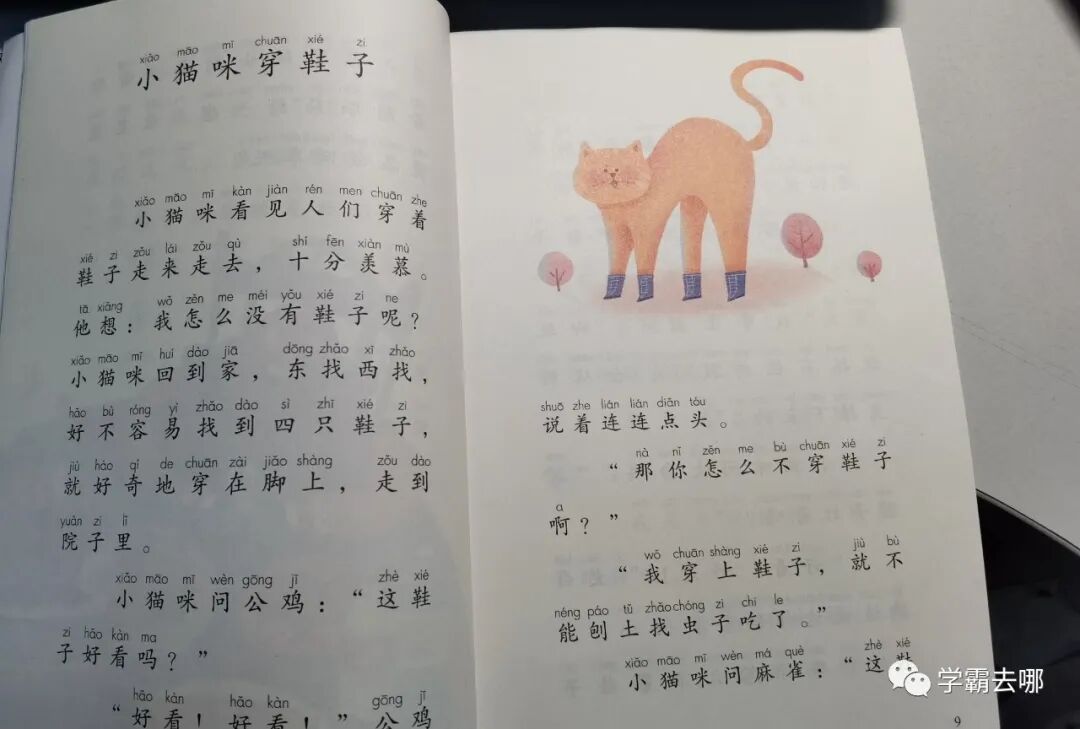 xiǎo māo mī chuān xié zi
小猫咪穿鞋子
xiǎo māo mī kàn jiàn rén men chuān zhe
小猫咪看见人们穿着
xié zi zǒu lái zǒu qù shí fēn xiàn mù
鞋子走来走去，十分羡慕。
tā xiǎng wǒ zěn me méi yǒu xié zi ne
他想：我怎么没有鞋子呢？
xiǎo māo mī huí dào jiā dōng zhǎo xī zhǎo
小猫咪回到家，东找西找，
hǎo bù róng yì zhǎo dào sì zhī xié zi
好不容易找到四只鞋子，
jiù hào qí de chuān zài jiǎo shàng zǒu dào
就好奇地穿在脚上，走到
yuàn zi lǐ
院子里。
xiǎo māo mī wèn gōng jī zhè xié
小猫咪问公鸡：“这鞋
zi hǎo kàn ma
子好看吗？”
hǎo kàn hǎo kàn gōng jī
“好看！好看！”公鸡
shuō zhe lián lián diǎn tóu
说着连连点头。
nà nǐ zěn me bù chuān xié zi
“那你怎么不穿鞋子
a
啊？”
wǒ chuān shàng xié zi jiù bù
“我穿上鞋子，就不
néng páo tǔ zhǎo chóng zi chī le
能刨土找虫子吃了。”
xiǎo māo mī wèn má què zhè xié
小猫咪问麻雀：“这鞋
9
学霸去哪